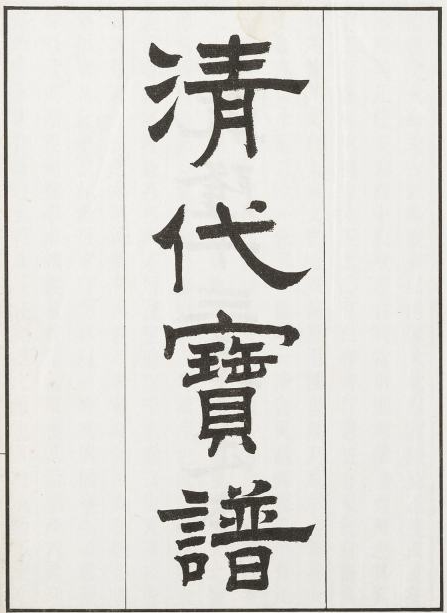 清代寶譜